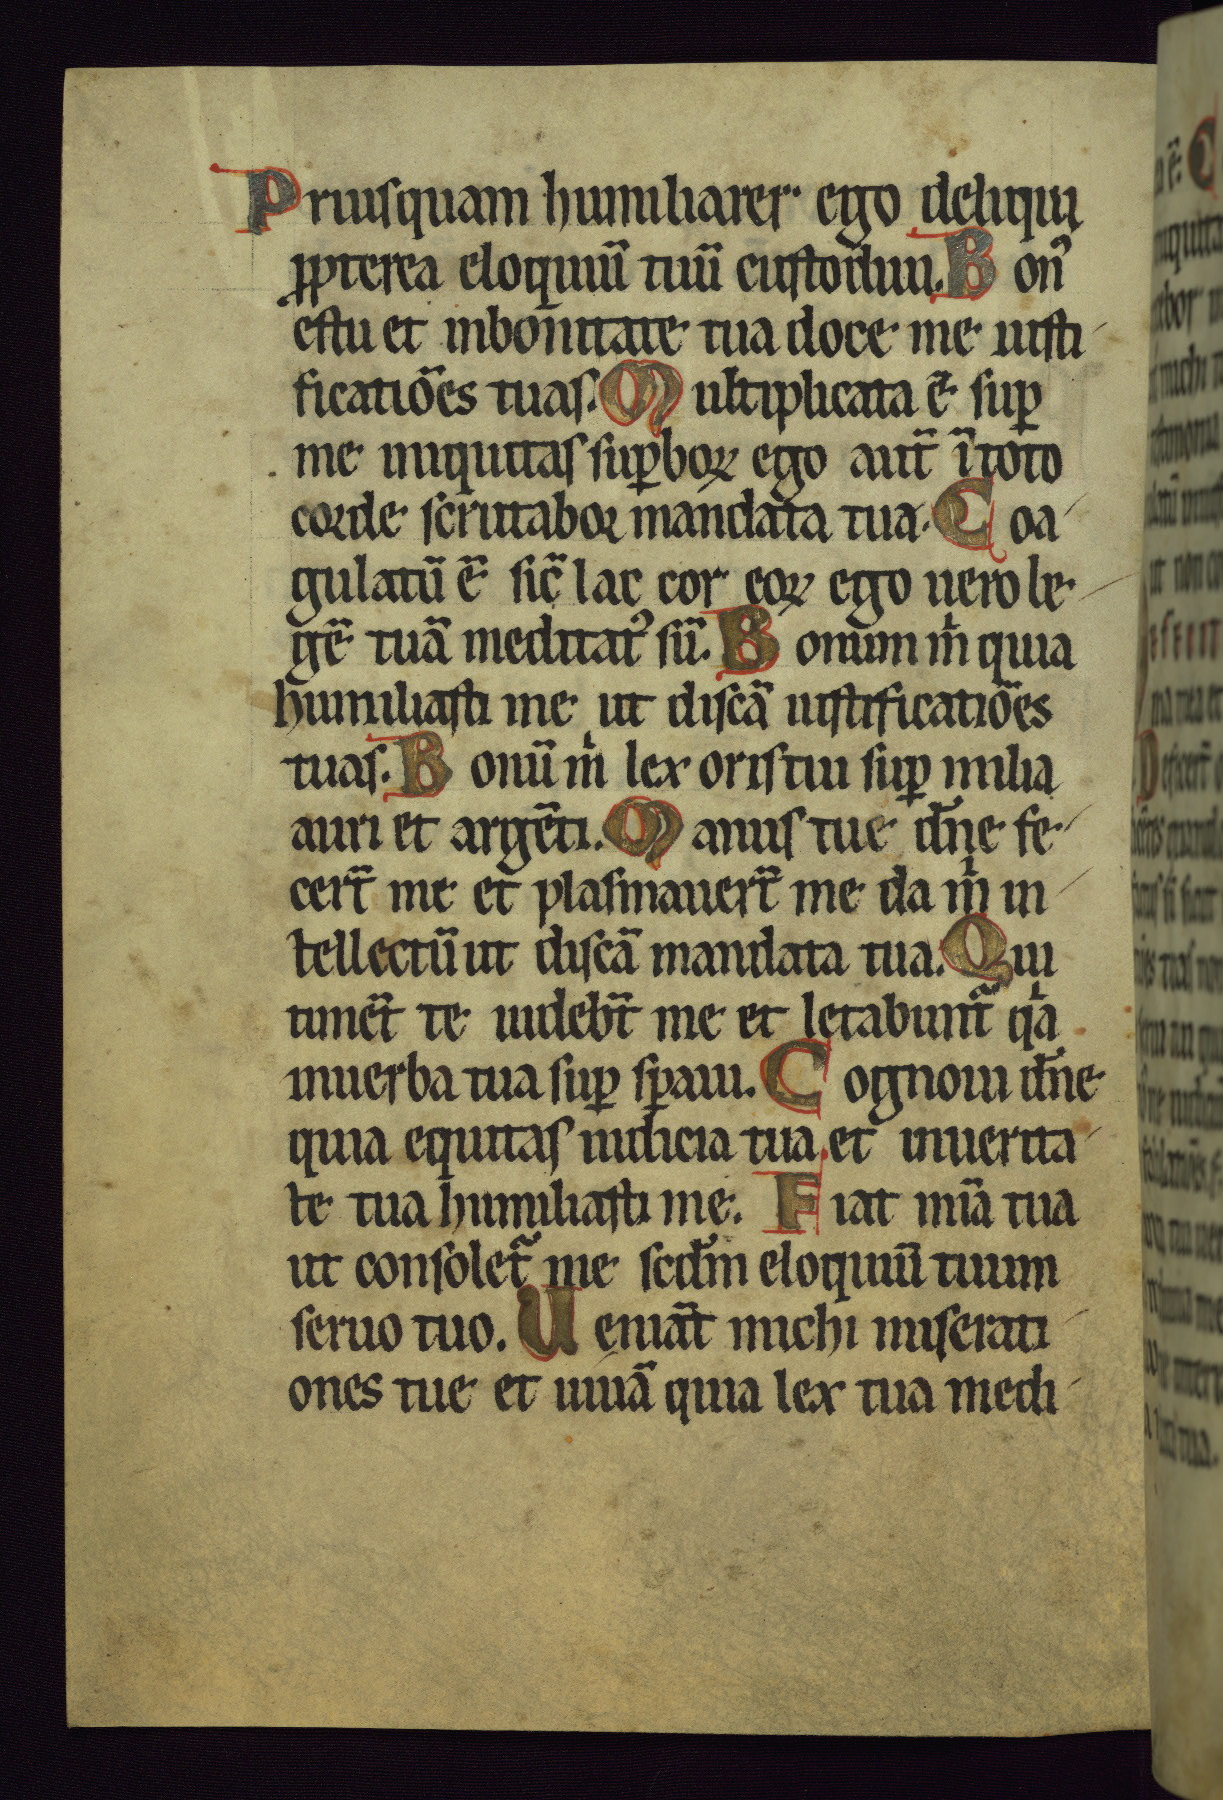 Priusquam humiliarer ego deliqui
ꝓpterea eloquiū tuū custodiui. Bonꝰ
es tu et in bonitate tua doce me iusti
ficatiōes tuas. Multiplicata ē suꝑ
me iniquitas suꝑboꝝ ego aut̄ ī toto
corde scrutabor mandata tua. Coa
gulatū ē sic̄ lac cor eoꝝ ego uero le
gē tuā meditatꝰ sū. Bonum m̄ quia
humiliasti me ut discā iustificatiōes
tuas. Bonū m̄ lex oris tui suꝑ milia
auri et argēti. Manus tue dn̄e fe
cert̄ me et plasmauert̄ me da m̄ in
tellectū ut discā mandata tua. Qui
timēt te uidebt̄ me et letabunt̄ qa
in uerba tua suꝑ sꝑaui. Cognoui dn̄e
quia equitas iudicia tua et in uerita
te tua humiliasti me. Fiat mīa tua
ut consolet̄ me scd̄m eloquiū tuum
seruo tuo. Ueniāt michi miserati
ones tue et uiuā quia lex tua medi